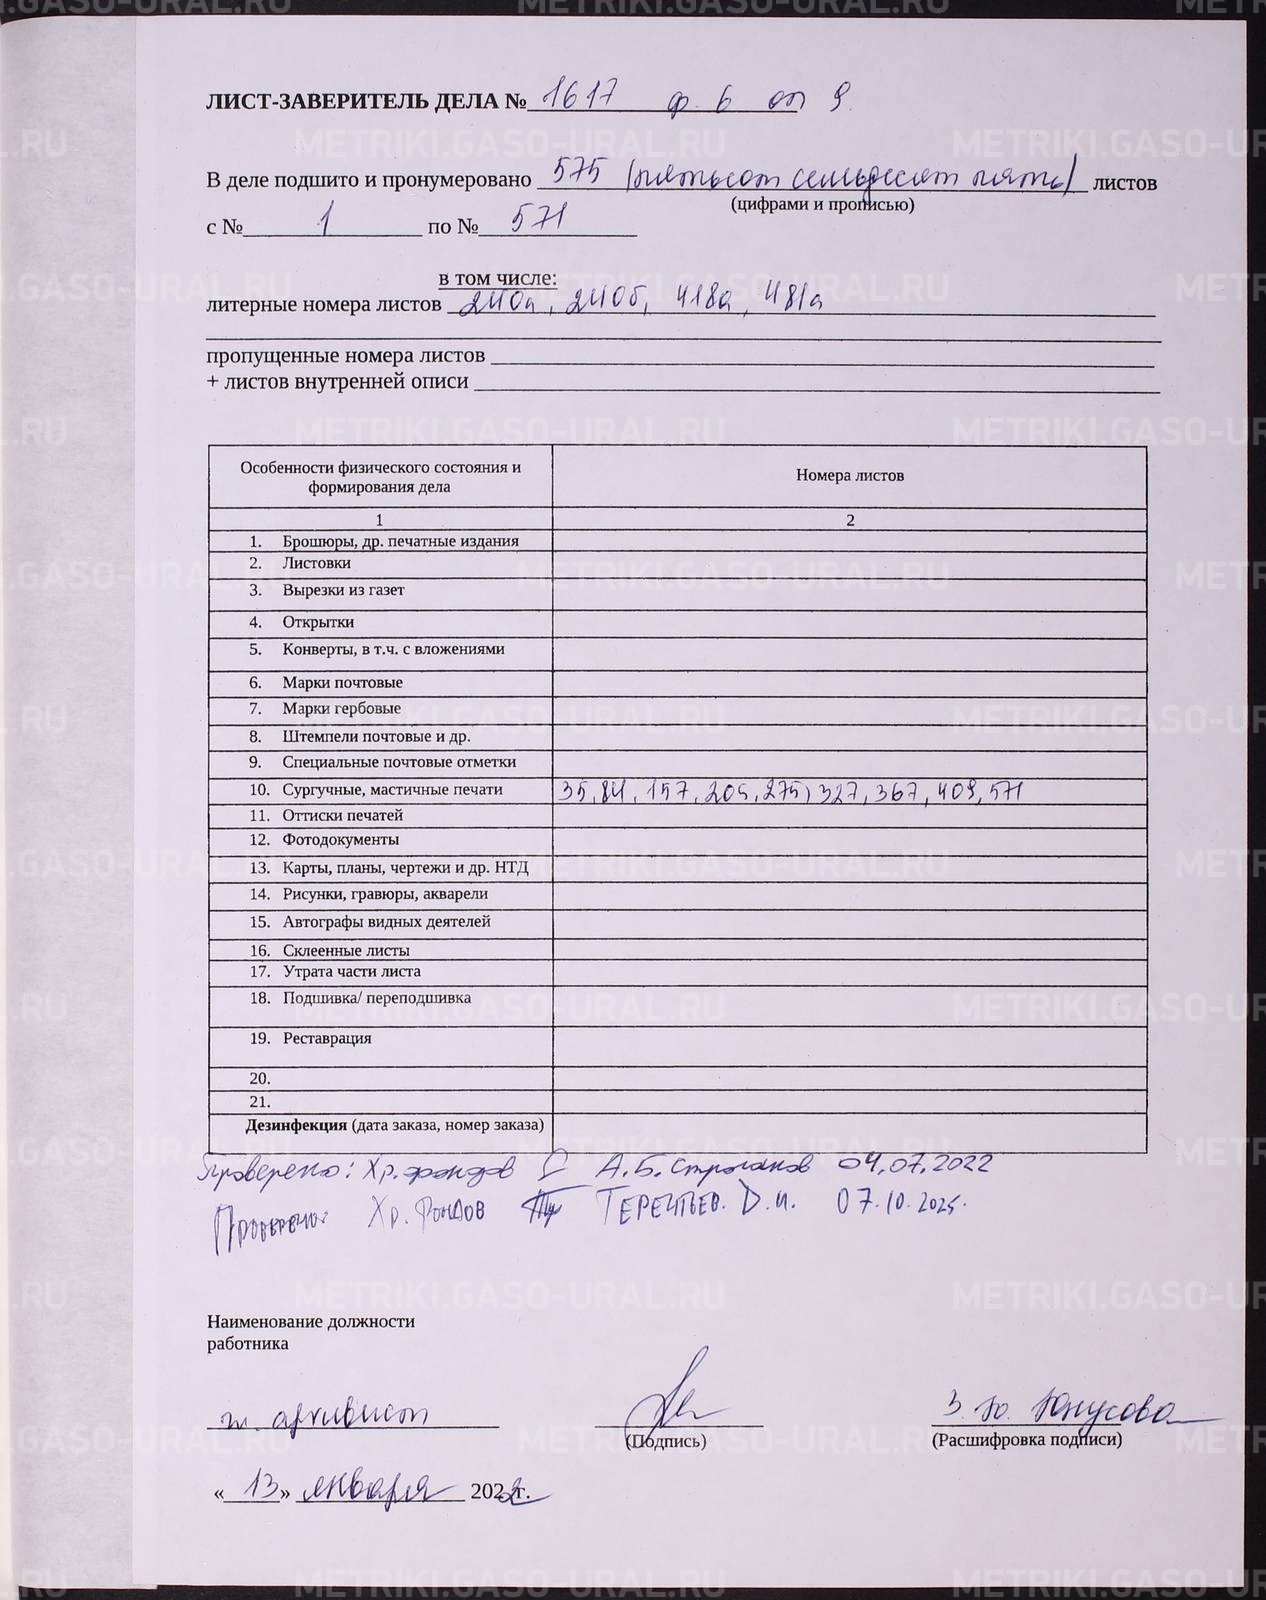 ЛИСТ-ЗАВЕРИТЕЛЬ ДЕЛА № 1617 ф. 6 оп 9
В деле подшито и пронумеровано 575 (пятьсот семьдесят пять) листов
(цифрами и прописью)
с № 1 по № 571
в том числе:
литерные номера листов 240а, 240б, 418а, 481а
пропущенные номера листов
+ листов внутренней описи
Особенности физического состояния и формирования дела Номера листов
1 2
1. Брошюры, др. печатные издания
2. Листовки
3. Вырезки из газет
4. Открытки
5. Конверты, в т.ч. с вложениями
6. Марки почтовые
7. Марки гербовые
8. Штемпели почтовые и др.
9. Специальные почтовые отметки
10. Сургучные, мастичные печати 35, 84, 157, 205, 275, 327, 367, 409, 571
11. Оттиски печатей
12. Фотодокументы
13. Карты, планы, чертежи и др. НТД
14. Рисунки, гравюры, акварели
15. Автографы видных деятелей
16. Склеенные листы
17. Утрата части листа
18. Подшивка/ переподшивка
19. Реставрация
20.
21.
Дезинфекция (дата заказа, номер заказа)
Проверено: Хр. фондов А.Б. Строганов 04.07.2022
Проверено: Хр. фондов Терентьев. Д.И. 07.10.2025.
Наименование должности
работника
гл. архивист З. Ю. Юнусова
(Подпись) (Расшифровка подписи)
«13» января 2022 г.
METRIKI.GASO-URAL.RU